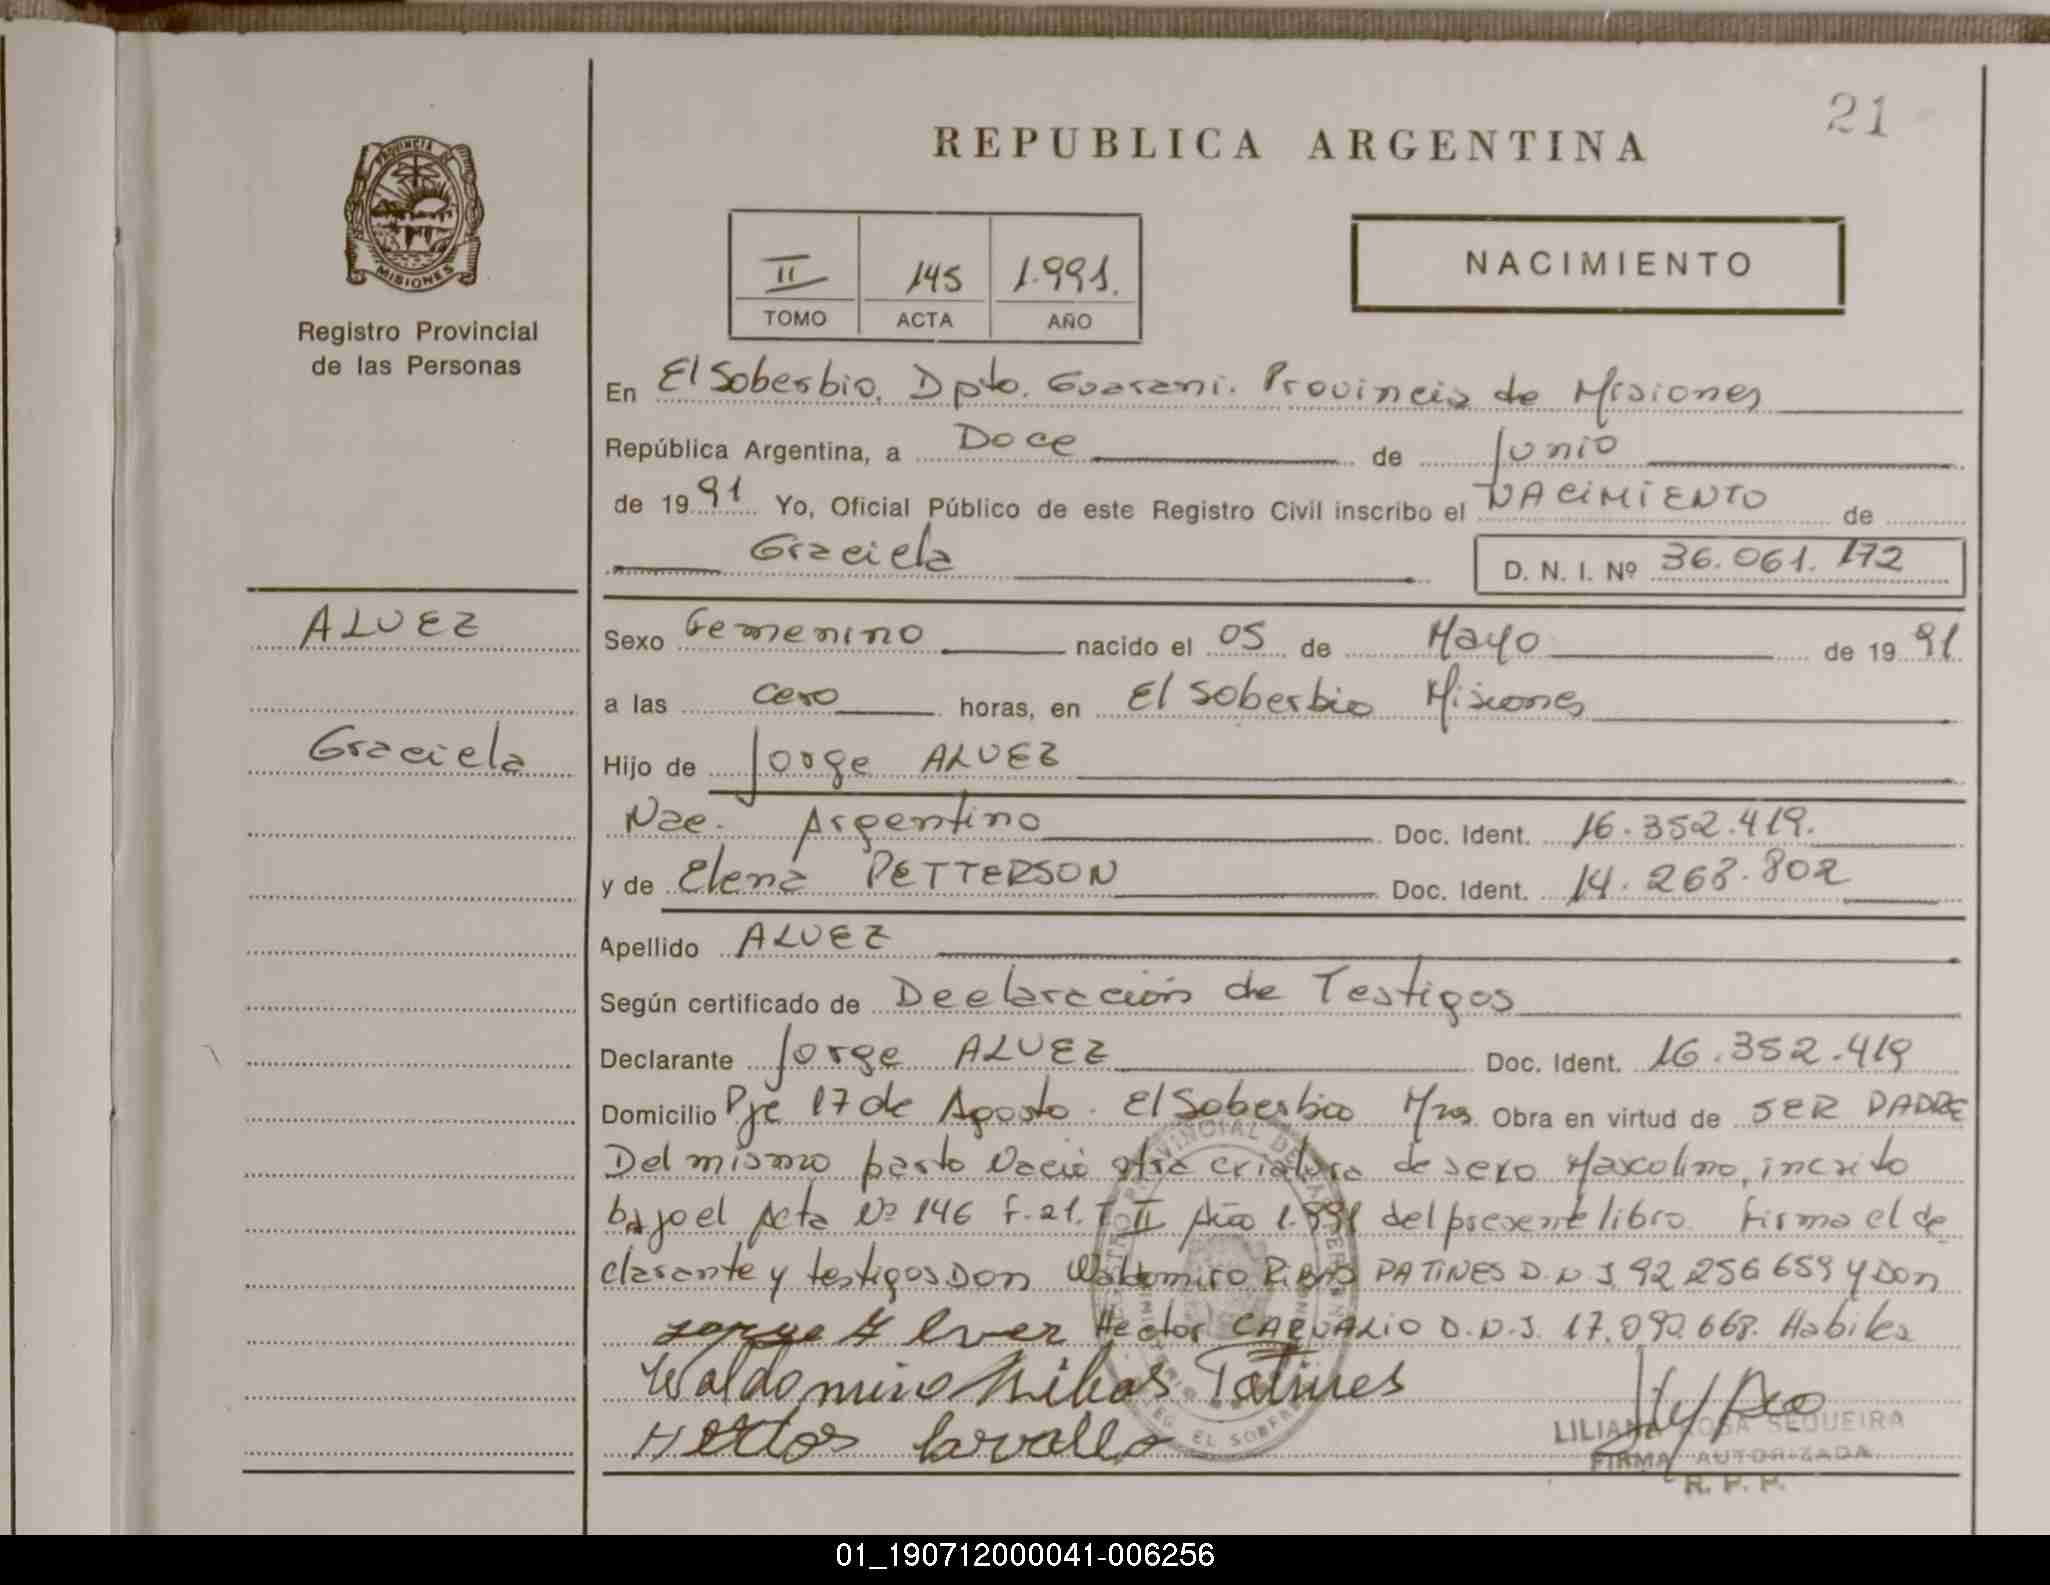 21
REPUBLICA ARGENTINA
PROVINCIA DE MISIONES
Registro Provincial
de las Personas
II 145 1.991.
TOMO ACTA AÑO
NACIMIENTO
En El Soberbio. Dpto. Guarani. Provincia de Misiones
República Argentina, a Doce de Junio
de 1991 Yo, Oficial Público de este Registro Civil inscribo el NACIMIENTO de
Graciela D. N. I. Nº 36.061.172
ALVEZ
Graciela
Sexo Femenino nacido el 05 de Mayo de 1991
a las cero horas, en El Soberbio Misiones
Hijo de Jorge ALVEZ
Nac. Argentino Doc. Ident. 16.352.419.
y de Elena PETTERSON Doc. Ident. 14.268.802
Apellido ALVEZ
Según certificado de Declaración de Testigos
Declarante Jorge ALVEZ Doc. Ident. 16.352.419
Domicilio Pje 17 de Agosto. El Soberbio Mnes Obra en virtud de SER PADRE
Del mismo parto Nació otra criatura de sexo Masculino, incrito
bajo el Acta Nº 146 F.21. T II Año 1.991 del presente libro. Firma el de
clarante y testigos Don Waldomiro RIBAS PATINES D.N.I. 92.256.659 y Don
Hector CARVALIO D.N.I. 17.090.668. Habiles
Jorge Alvez
Waldomiro Ribas Patines
Hector Carvallo
LILIANA ROSA SEQUEIRA
FIRMA AUTORIZADA
R. P. P.
01_190712000041-006256